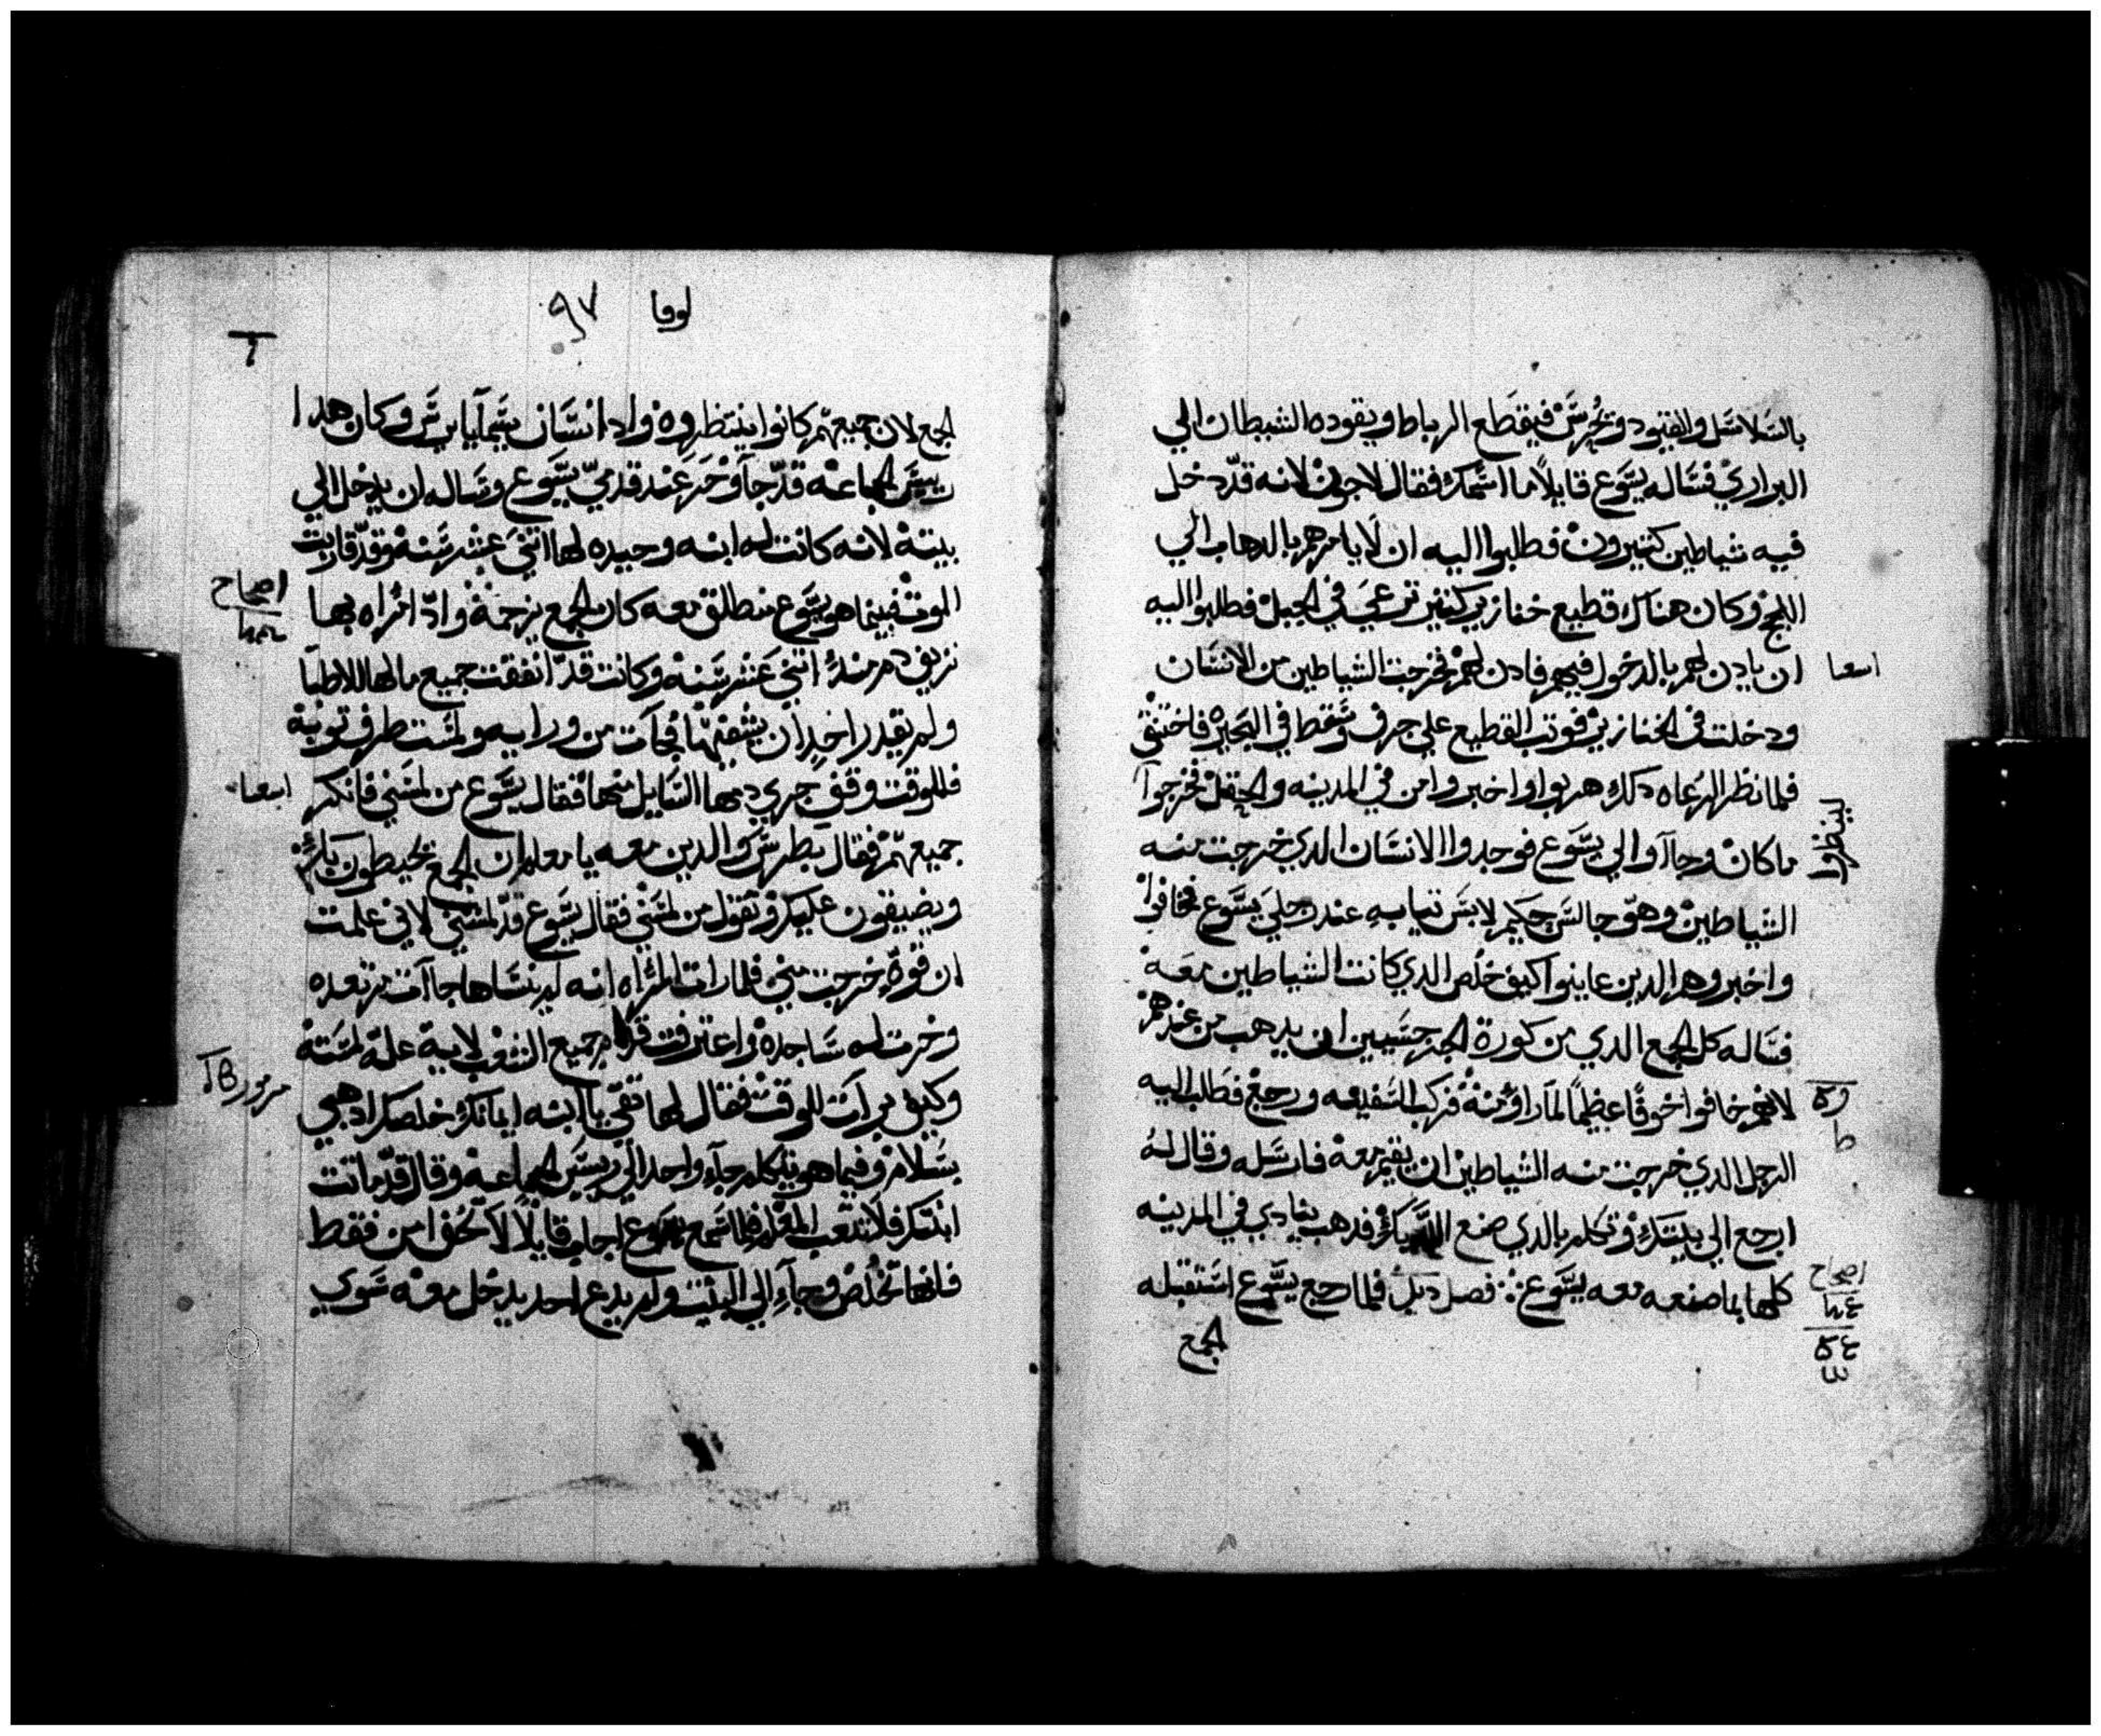 بالسلاسل والقيود وتحرس فيقطع الرباط ويقوده الشيطان الي
البراري فساله يسوع قايلاً ما اسمك فقال لاجون لانه قد دخل
فيه شياطين كتيرون فطلبوا اليه ان لا يامرهم بالدهاب الي
اللجج وكان هناك قطيع خنازير كتير ترعي في الجبل فطلبوا اليه
ان يادن لهم بالدخول فيهم فادن لهم فخرجت الشياطين من الانسان
ودخلت في الخنازير فوتب القطيع علي جرف وسقط في البحيره فاختنق
فلما نظر الرعاه دلك هربوا واخبروا من في المدينه والحقل فخرجوا
لينظروا
ما كان وجاآوا الي يسوع فوجدوا الانسان الدي خرجت منه
الشياطين وهو جالس حكيم لابس تيابه عند رجلي يسوع فخافوا
واخبروهم الدين عاينوا كيف خلص الدي كانت الشياطين معه
فساله كل الجمع الدي من كورة الجرجسيين ان يدهب من عندهم
لانهم خافوا خوفًا عظيمًا لما راوا منه فركب السفينه ورجع فطلب اليه
الرجل الدي خرجت منه الشياطين ان يقيم معه فارسله وقال له
ارجع الي بيتك وتكلم بالدي صنع الله بك فدهب ينادي في المدينه
كلها بما صنعه معه يسوع فصل فلما رجع يسوع استقبله
اصحاح
الجمع
لوقا ٩٧
الجمع لان جميعهم كانوا ينتظروه واد انسان يسمي يايرس وكان هدا
رييس الجماعه قد جا وخر عند قدمي يسوع وساله ان يدخل الي
بيته لانه كانت له ابنه وحيده لها اتني عشر سنه وقد قاربت
الموت فبينما هو يسوع منطلق معه كان الجمع يزحمه واد امراه بها
اصحاح
نزيف دم مند اتني عشر سنه وكانت قد انفقت جميع مالها للاطبا
ولم يقدر احد ان يشفيها فجات من ورايه ولمست طرف توبه
فللوقت وقف جري دمها السايل منها فقال يسوع من لمسني فانكر
جميعهم فقال بطرس والدين معه يا معلم ان الجمع يحيطون بك
ويضيقون عليك وتقول من لمسني فقال يسوع قد لمسني لاني علمت
ان قوة خرجت مني فلما رات المراه انه لم ينساها جاآت مرتعده
وخرت له ساجده واعترفت قدام جميع الشعب لاية علة لمسته
وكيف برات للوقت فقال لها تقي يا ابنه ايمانك خلصك ادهبي
بسلام وفيما هو يتكلم جآء واحد الي رييس الجماعه وقال قد ماتت
ابنتك فلا تتعب المعلم فلما سمع يسوع اجاب قايلاً لا تخف امن فقط
فانها تخلص وجآء الي البيت ولم يدع احد يدخل معه سوي